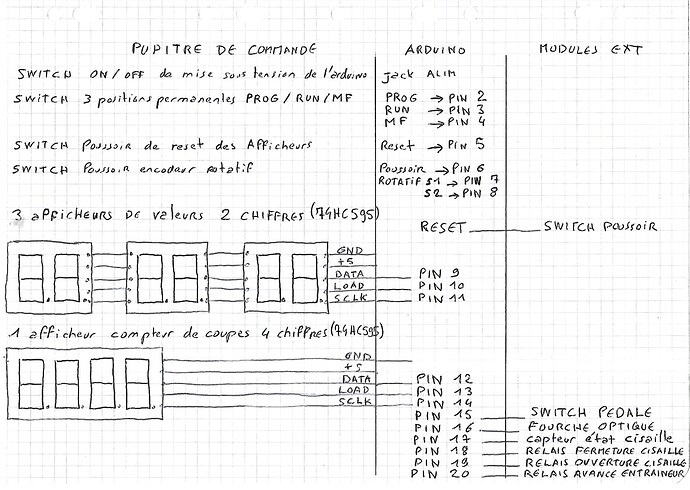 PUPITRE DE COMMANDE ARDUINO MODULES EXT
SWITCH ON/OFF da mise sous tension de l'arduino Jack ALIM
SWITCH 3 positions permanentes PROG / RUN / MF PROG → PIN 2
RUN → PIN 3
MF → PIN 4
SWITCH Poussoir de reset des Afficheurs Reset → PIN 5
SWITCH Poussoir encodeur rotatif Poussoir → PIN 6
ROTATIF S1 → PIN 7
S2 → PIN 8
3 afficheurs de valeurs 2 CHIFFRES (74HC595)
RESET SWITCH POUSSOIR
GND
+5
DATA PIN 9
LOAD PIN 10
SCLK PIN 11
1 afficheur compteur de coupes 4 chiffres (74HC595)
GND
+5
DATA PIN 12
LOAD PIN 13
SCLK PIN 14
PIN 15 SWITCH PEDALE
PIN 16 FOURCHE OPTIQUE
PIN 17 capteur état cisaille
PIN 18 RELAIS FERMETURE CISAILLE
PIN 19 RELAIS OUVERTURE CISAILLE
PIN 20 RELAIS AVANCE ENTRAINEUR